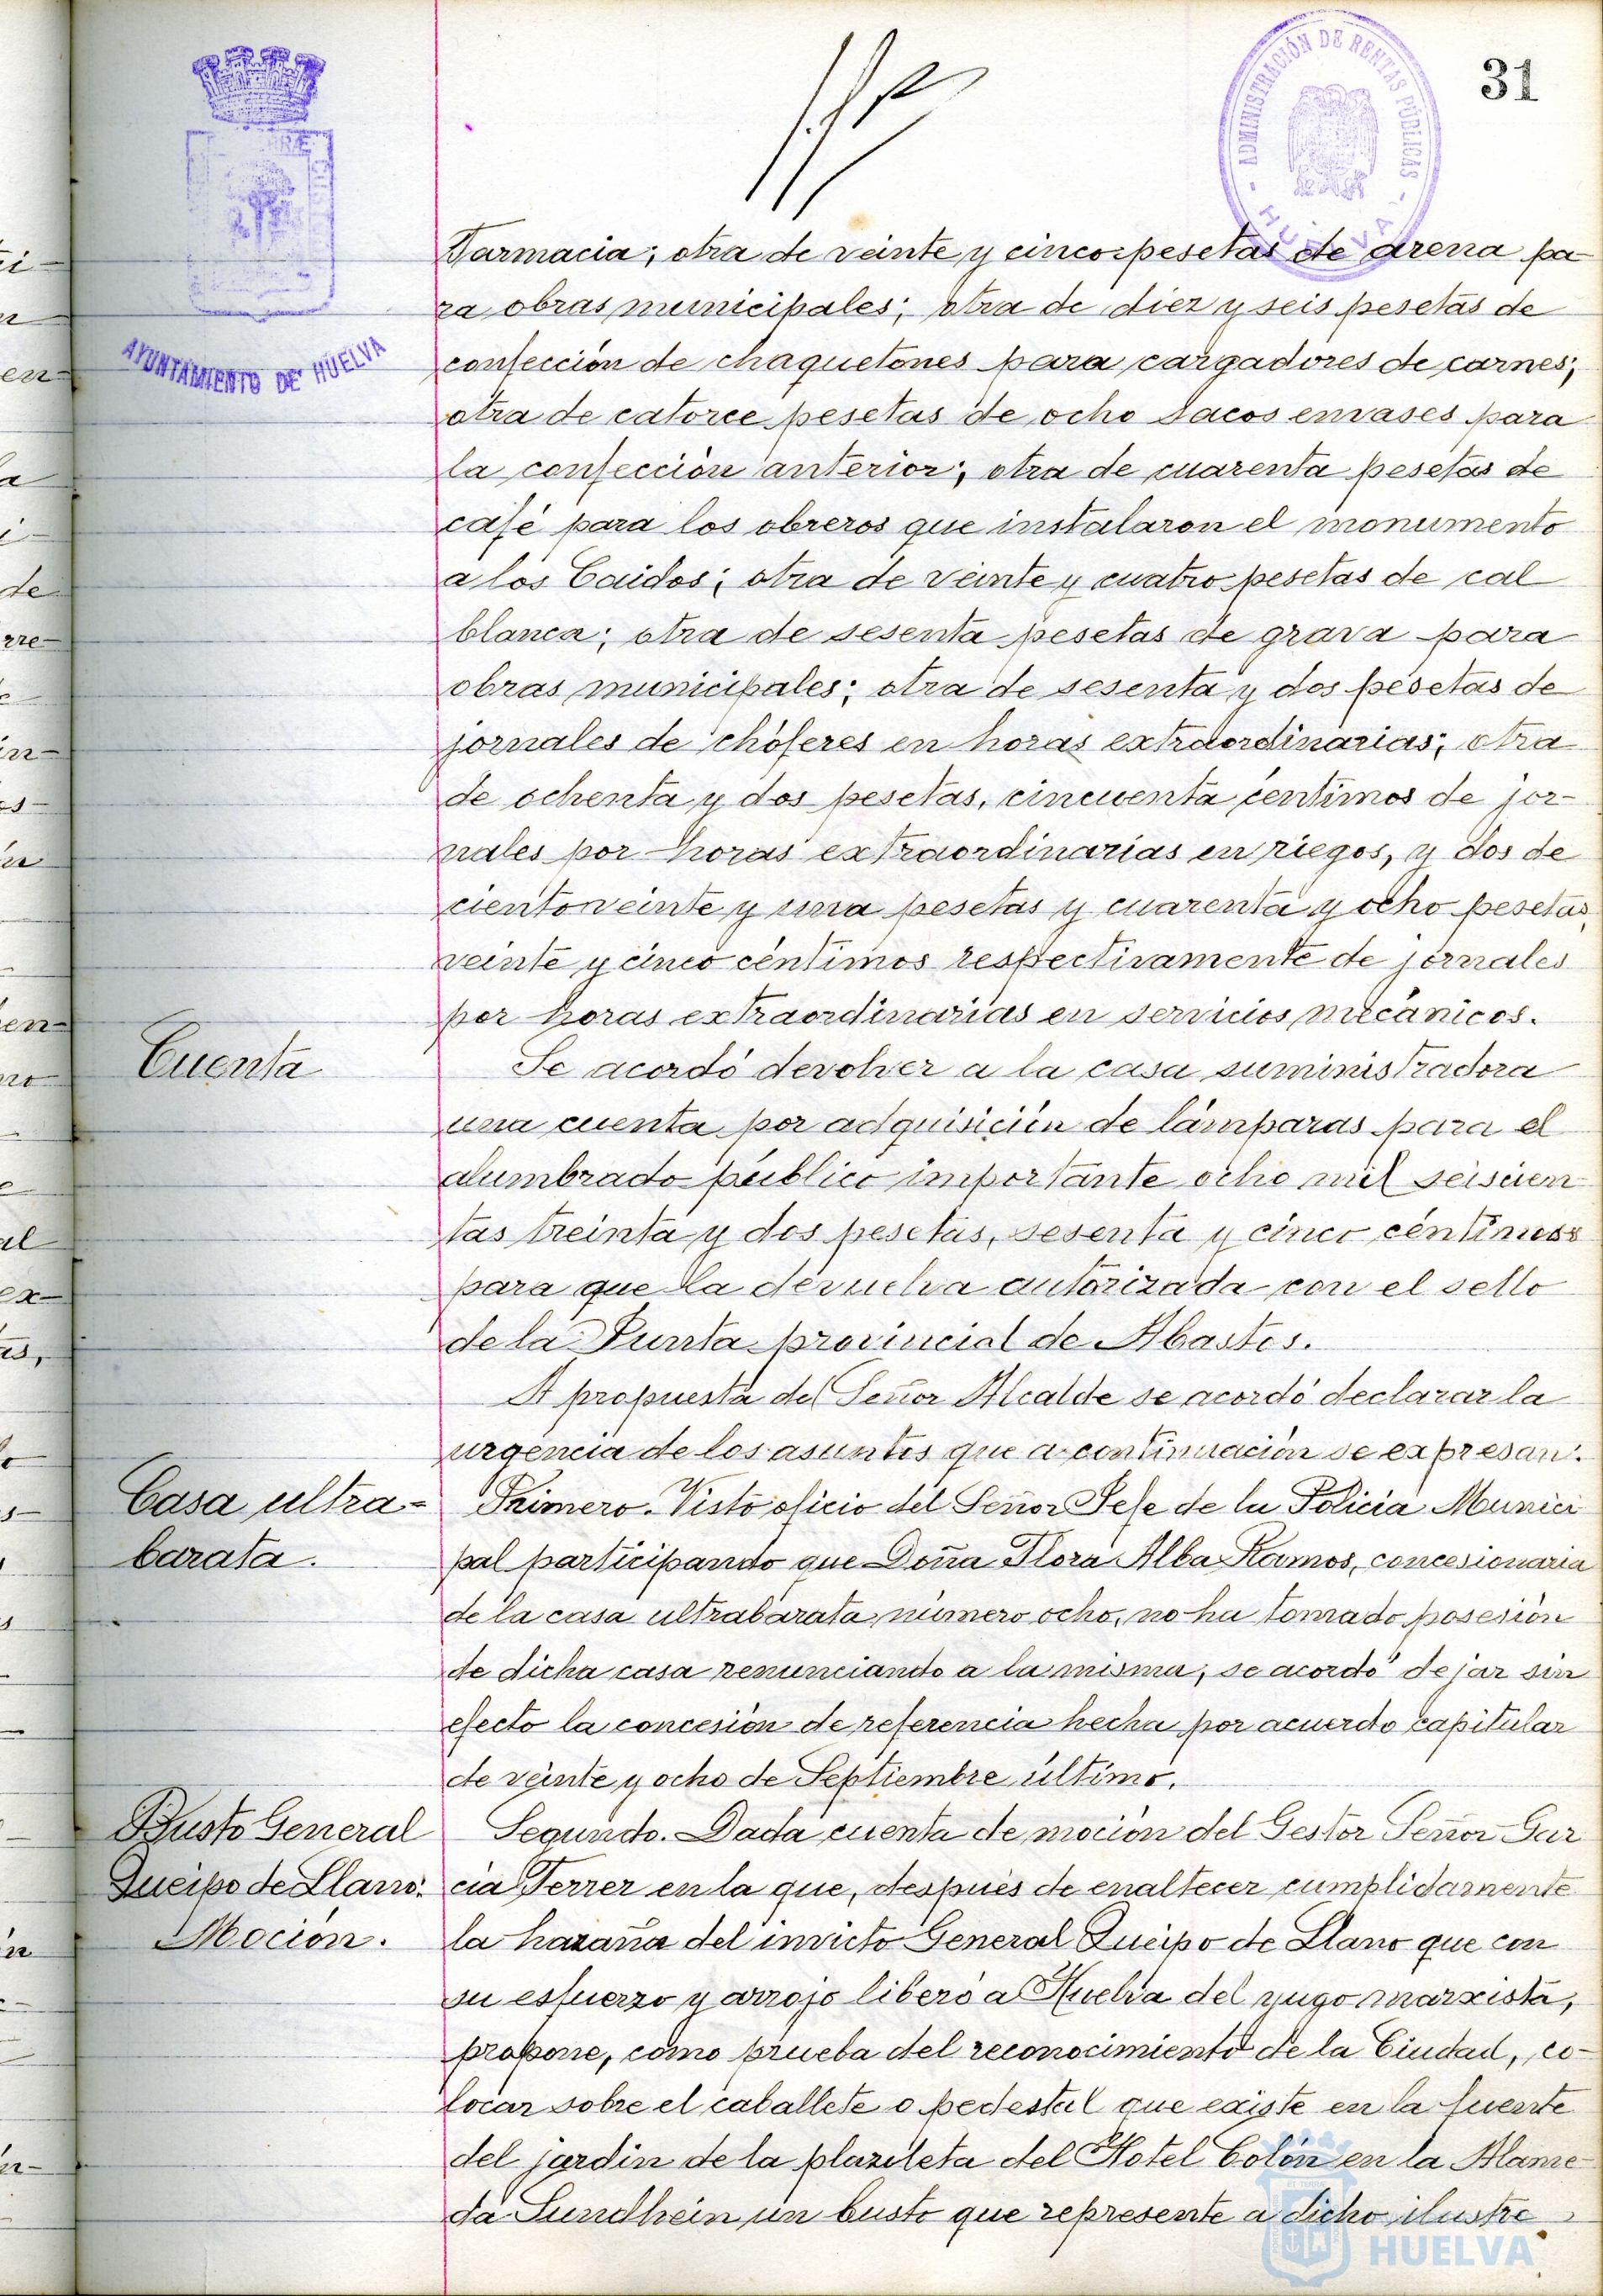 31
ADMINISTRACIÓN DE RENTAS PÚBLICAS
- HUELVA -
AYUNTAMIENTO DE HUELVA
Farmacia; otra de veinte y cinco pesetas de arena pa-
ra obras municipales; otra de diez y seis pesetas de
confección de chaquetones para cargadores de carnes;
otra de catorce pesetas de ocho sacos envases para
la confección anterior; otra de cuarenta pesetas de
café para los obreros que instalaron el monumento
a los Caidos; otra de veinte y cuatro pesetas de cal
blanca; otra de sesenta pesetas de grava para
obras municipales; otra de sesenta y dos pesetas de
jornales de chóferes en horas extraordinarias; otra
de ochenta y dos pesetas, cincuenta céntimos de jor-
nales por horas extraordinarias en riegos, y dos de
ciento veinte y una pesetas y cuarenta y ocho pesetas,
veinte y cinco céntimos respectivamente de jornales
por horas extraordinarias en servicios mecánicos.
Cuenta
Se acordó devolver a la casa suministradora
una cuenta por adquisición de lámparas para el
alumbrado público importante ocho mil seiscien
tas treinta y dos pesetas, sesenta y cinco céntimos
para que la devuelva autorizada con el sello
de la Junta provincial de Abastos.
A propuesta del Señor Alcalde se acordó declarar la
urgencia de los asuntos que a continuación se expresan:
Casa ultra-
barata.
Primero. Visto oficio del Señor Jefe de la Policía Munici
pal participando que Doña Flora Alba Ramos, concesionaria
de la casa ultrabarata número ocho, no ha tomado posesión
de dicha casa renunciando a la misma; se acordó dejar sin
efecto la concesión de referencia hecha por acuerdo capitular
de veinte y ocho de Septiembre último.
Busto General
Queipo de Llano.
Moción.
Segundo. Dada cuenta de moción del Gestor Señor Gar
cía Ferrer en la que, después de enaltecer cumplidamente
la hazaña del invicto General Queipo de Llano que con
su esfuerzo y arrojo liberó a Huelva del yugo marxista,
propone, como prueba del reconocimiento de la Ciudad, co-
locar sobre el caballete o pedestal que existe en la fuente
del jardín de la plazoleta del Hotel Colón en la Alame-
da Sundhein un busto que represente a dicho ilustre
HUELVA